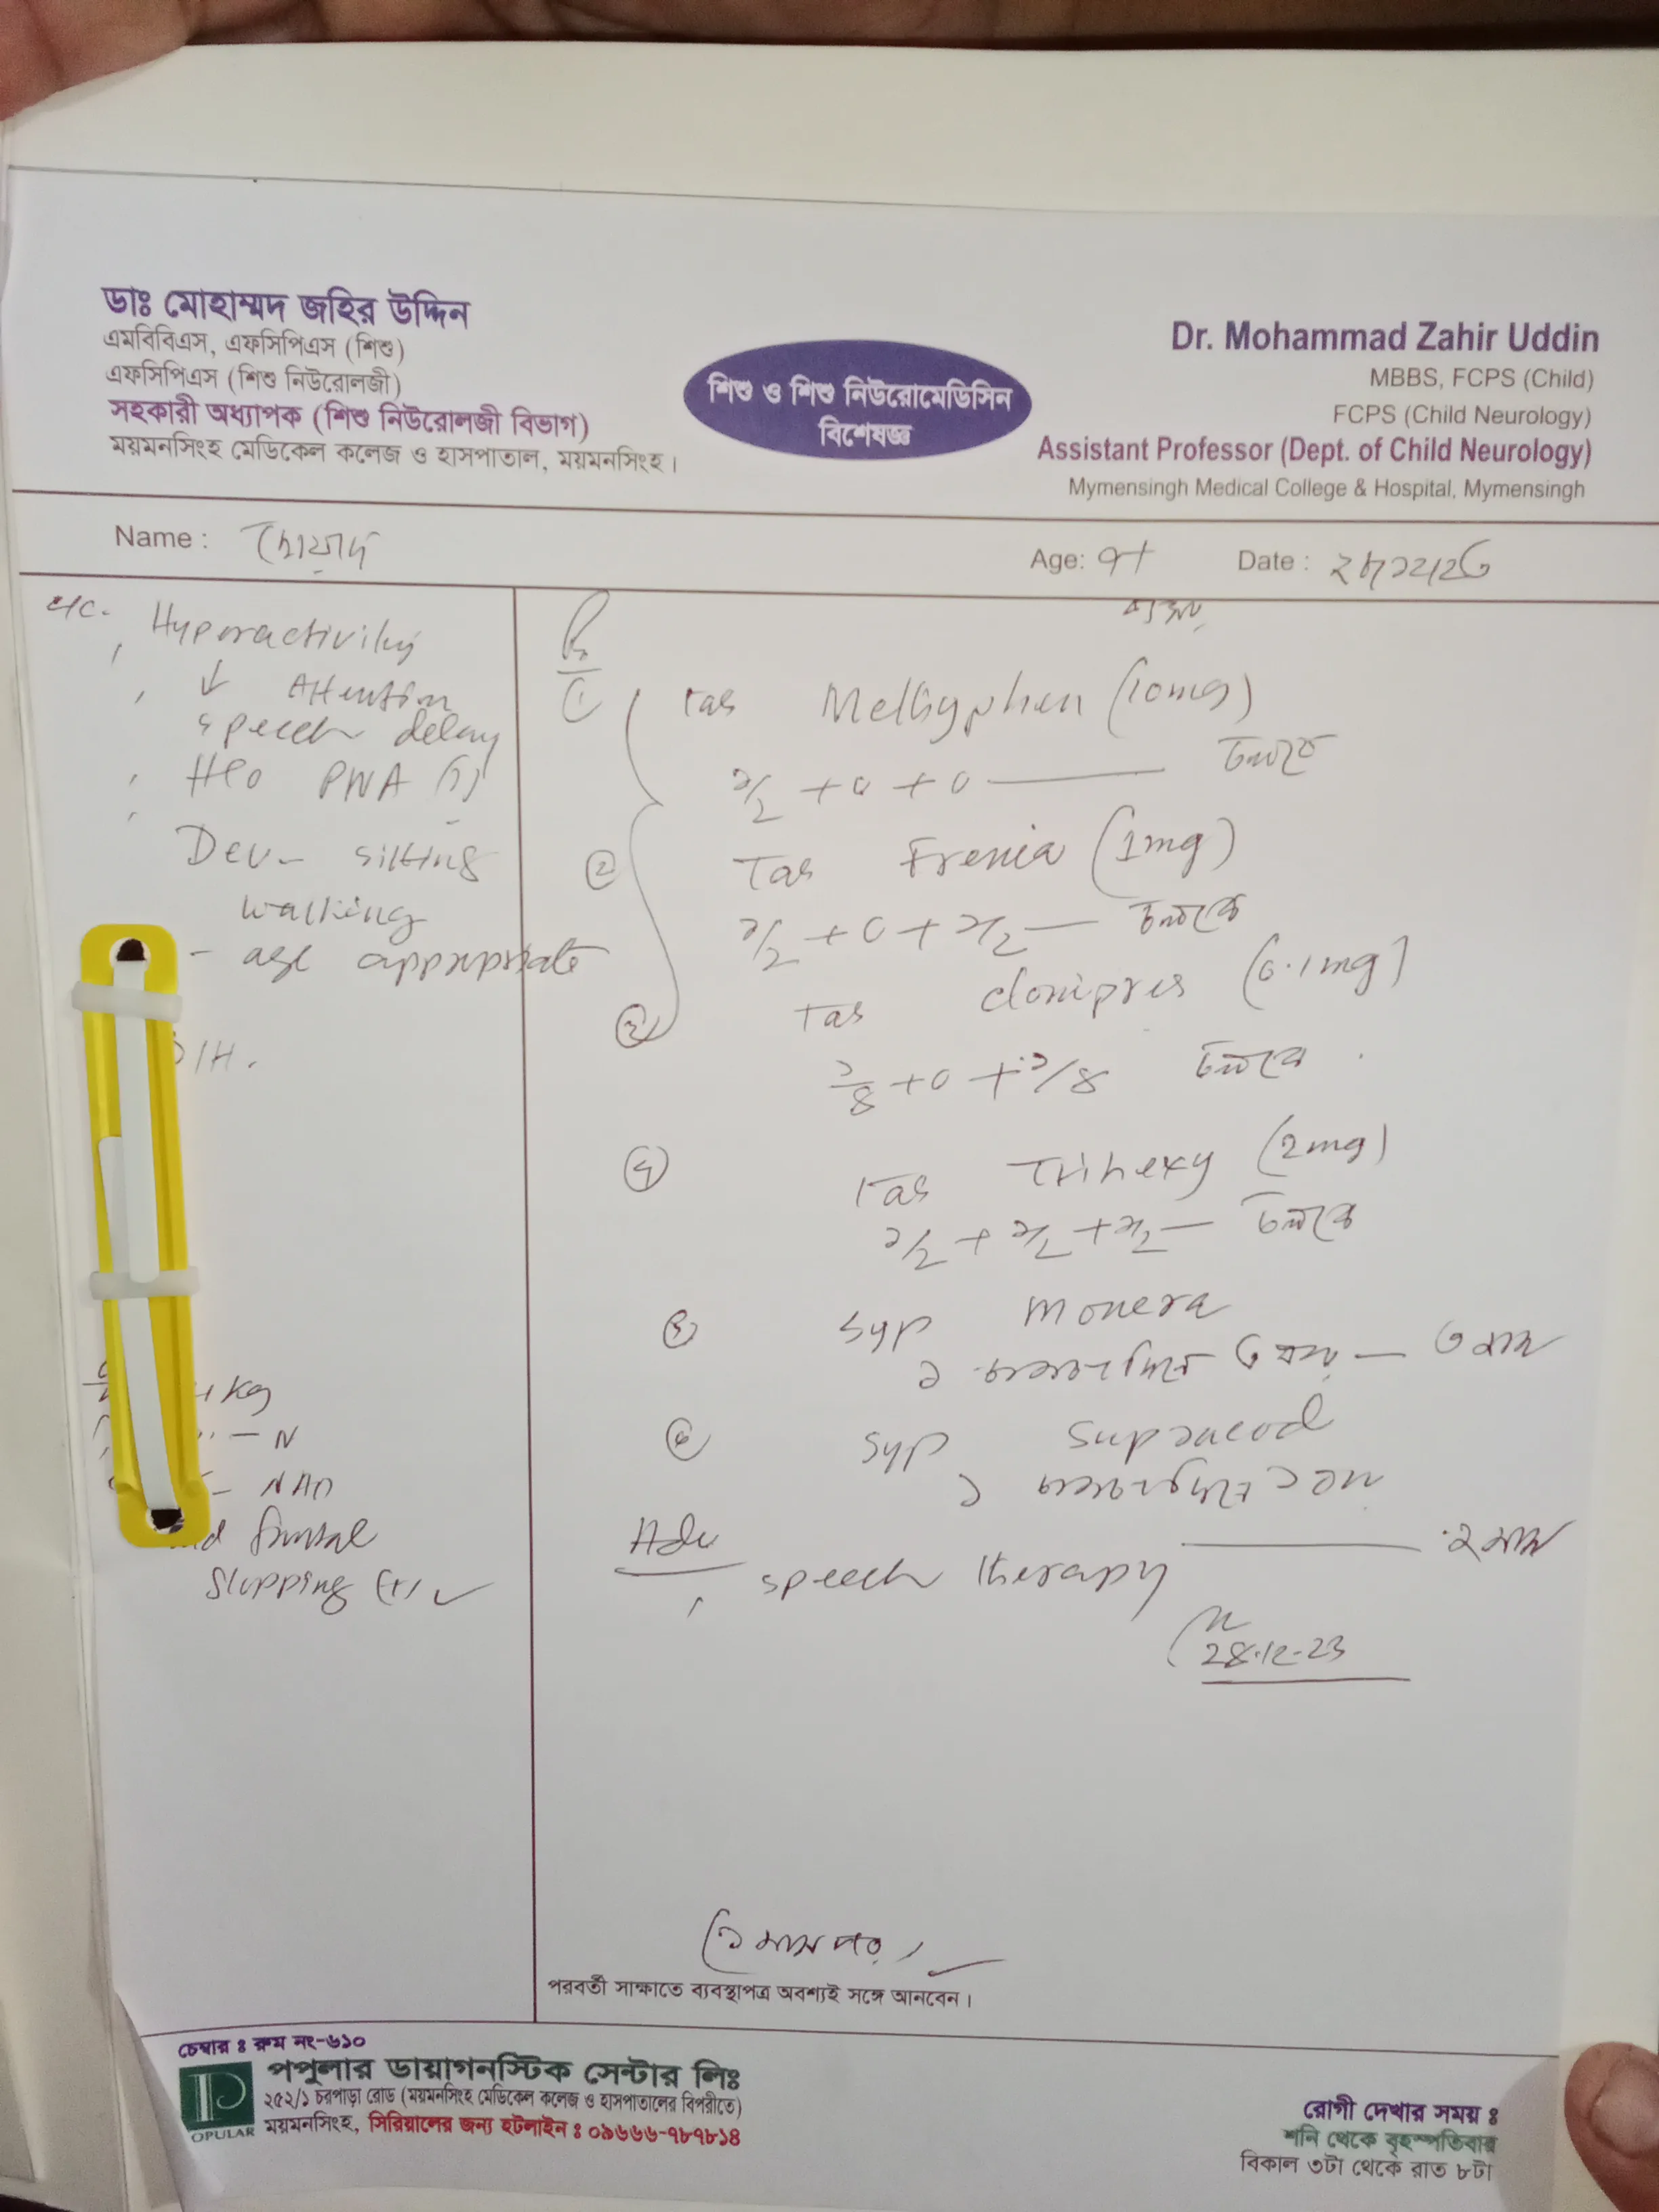 ডাঃ মোহাম্মদ জহির উদ্দিন
এমবিবিএস, এফসিপিএস (শিশু)
এফসিপিএস (শিশু নিউরোলজী)
সহকারী অধ্যাপক (শিশু নিউরোলজী বিভাগ)
ময়মনসিংহ মেডিকেল কলেজ ও হাসপাতাল, ময়মনসিংহ।
শিশু ও শিশু নিউরোমেডিসিন
বিশেষজ্ঞ
Dr. Mohammad Zahir Uddin
MBBS, FCPS (Child)
FCPS (Child Neurology)
Assistant Professor (Dept. of Child Neurology)
Mymensingh Medical College & Hospital, Mymensingh
Name :
Age: ৭+
Date : ২৮/১২/২৩
Hyperactivity
↓ Attention
speech delay
H/o PNA
Dev- sitting
walking
- age appropriate
kg
- N
- NAD
frontal
slopping (+) ✓
Rx
① Tab Methyphen (10mg)
১/২ + ০ + ০ — চলবে
② Tab Frenia (1mg)
১/২ + ০ + ১/২ — চলবে
③ Tab clonipres (0.1mg)
১/৪ + ০ + ১/৪ চলবে
④ Tab Trihexy (2mg)
১/২ + ১/২ + ১/২ — চলবে
⑤ Syp Monera
১ চামচ — ৩ মাস
⑥ Syp Supracod
১ চামচ
— ২ মাস
Adv
, speech therapy
28.12.23
মাস পর
পরবর্তী সাক্ষাতে ব্যবস্থাপত্র অবশ্যই সঙ্গে আনবেন।
চেম্বার ঃ রুম নং-৬১০
পপুলার ডায়াগনস্টিক সেন্টার লিঃ
২৫২/১ চরপাড়া রোড (ময়মনসিংহ মেডিকেল কলেজ ও হাসপাতালের বিপরীতে)
ময়মনসিংহ, সিরিয়ালের জন্য হটলাইন ঃ ০৯৬৬৬-৭৮৭৮১৪
OPULAR
রোগী দেখার সময় ঃ
শনি থেকে বৃহস্পতিবার
বিকাল ৩টা থেকে রাত ৮টা